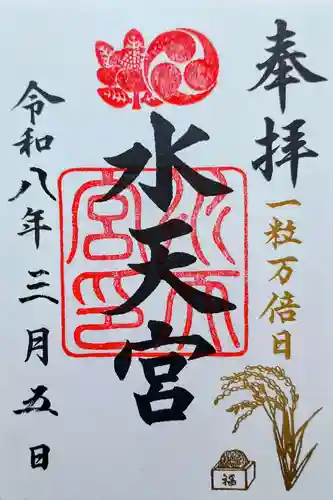 奉拝
一粒万倍日
福
水天宮
令和八年三月五日